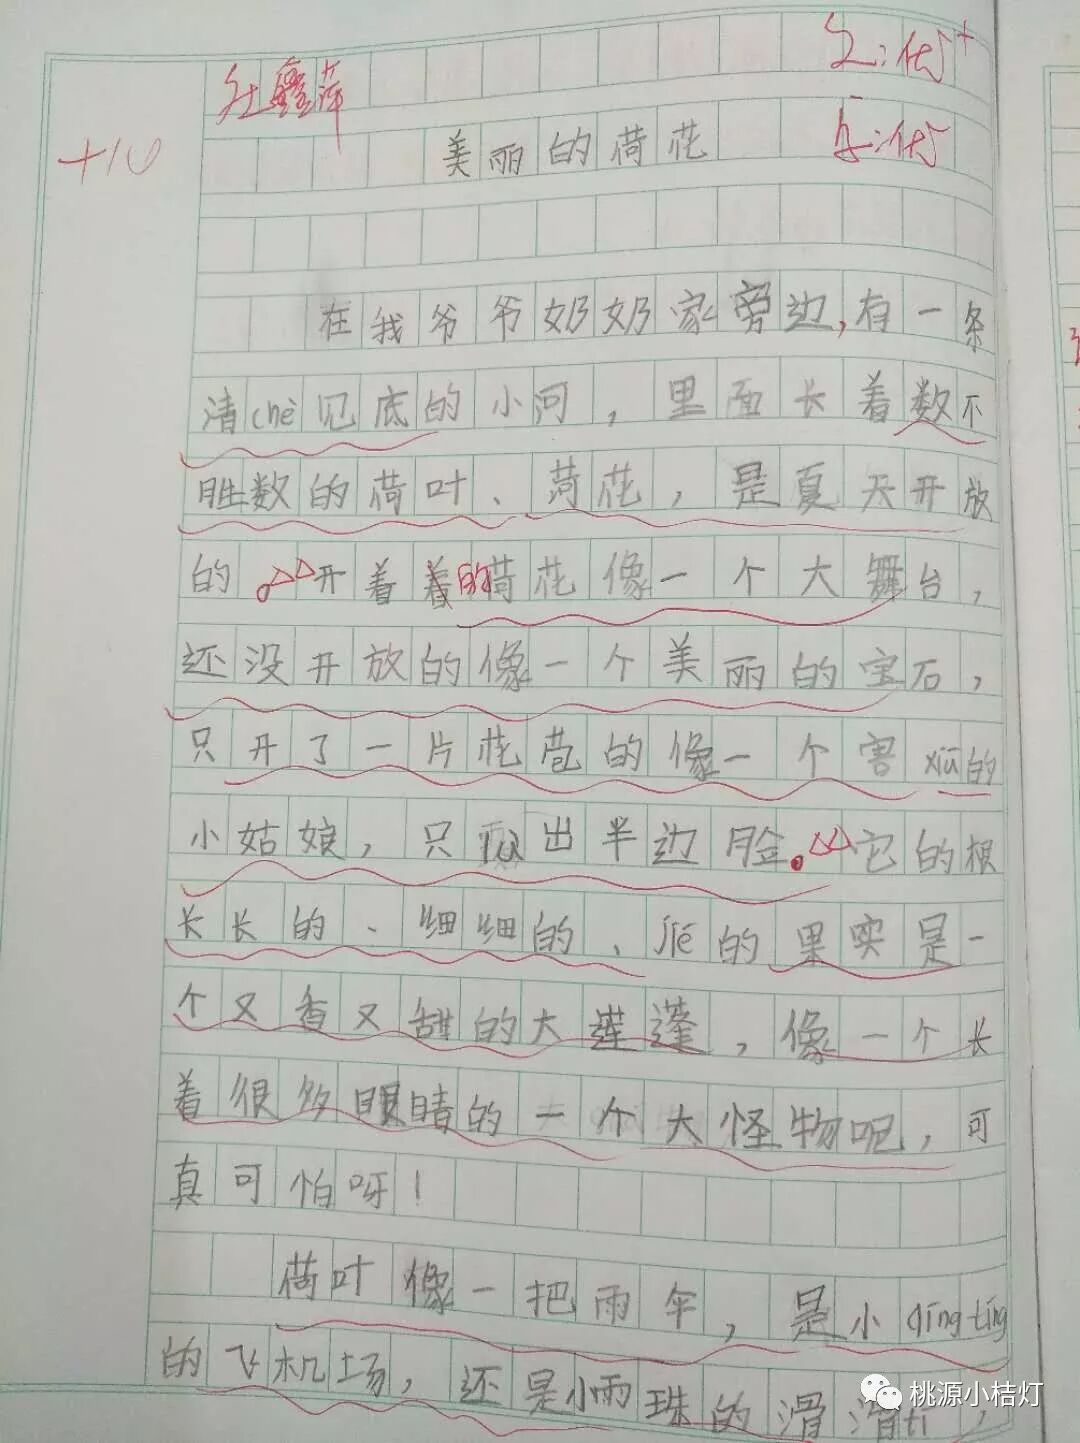 杜鑫萍
文:优+
+10
美丽的荷花
字:优
在我爷爷奶奶家旁边,有一条
清chè见底的小河,里面长着数不
胜数的荷叶、荷花,是夏天开放
的。开着着的荷花像一个大舞台,
还没开放的像一个美丽的宝石,
只开了一片花苞的像一个害xiū的
小姑娘,只露出半边脸。它的根
长长的、细细的、jié的果实是一
个又香又甜的大莲蓬,像一个长
着很多眼睛的一个大怪物吧,可
真可怕呀!
荷叶像一把雨伞,是小qīng tíng
的飞机场,还是小雨珠的滑滑tī,
桃源小桔灯